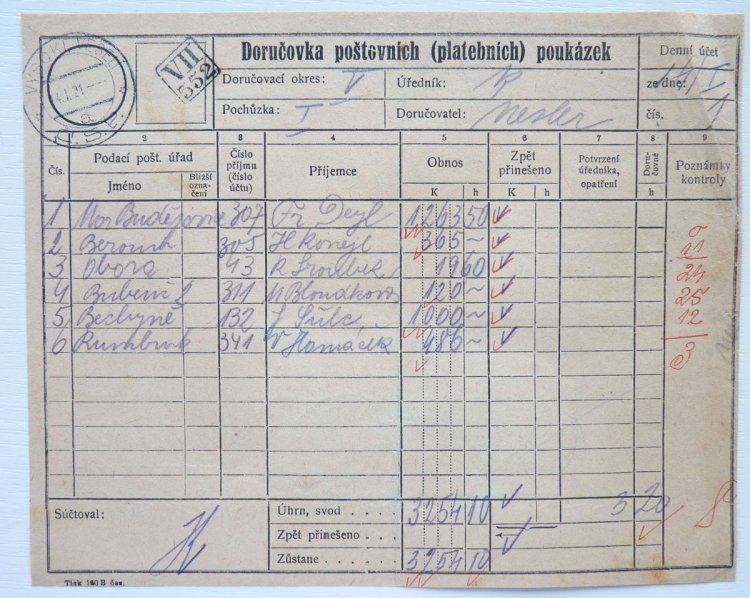 Doručovka poštovních (platebních) poukázek
Denní účet
VII
552
Doručovací okres: V
Úředník: K
ze dne: 14/I
Pochůzka: I
Doručovatel: Nesler
čís. 1
2 3 4 5 6 7 8 9
Čís.
Podací pošt. úřad
Jméno
Bližší ozna-
čení
Číslo
příjmu
(číslo
účtu)
Příjemce
Obnos
K h
Zpět
přinešeno
K h
Potvrzení
úředníka,
opatření
Doru-
čovné
h
Poznámky
kontroly
1 Mor Budějovice 307 Fr Deyl 1263 50
2 Beroun 305 365 ~
3 Obora 43 19 60
4 Bubeneč 311 120 ~
5 Bechyně 132 J Šulc 1000 ~
6 Rumburk 341 V Hamáček 486 ~
11
24
25
12
3
Súčtoval:
Úhrn, svod . . . . 3254 10
3 20
Zpět přinešeno . .
Zůstane . . . . 3254 10
Tisk 160 B čes.